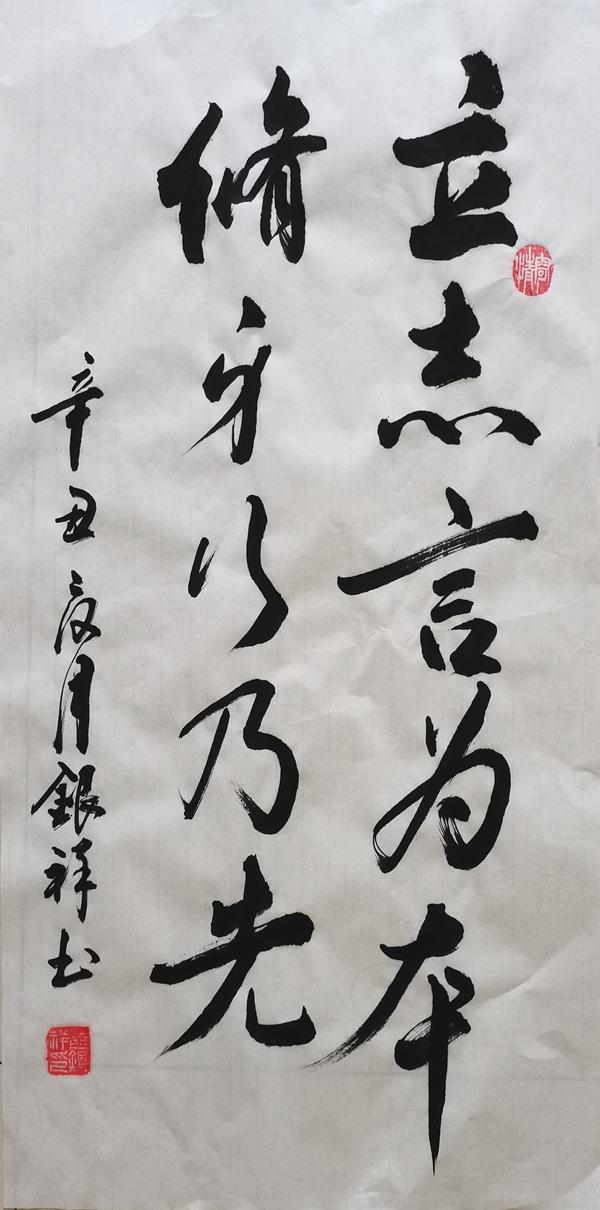 立志言为本
脩身行乃先
辛丑夏月銀祥书